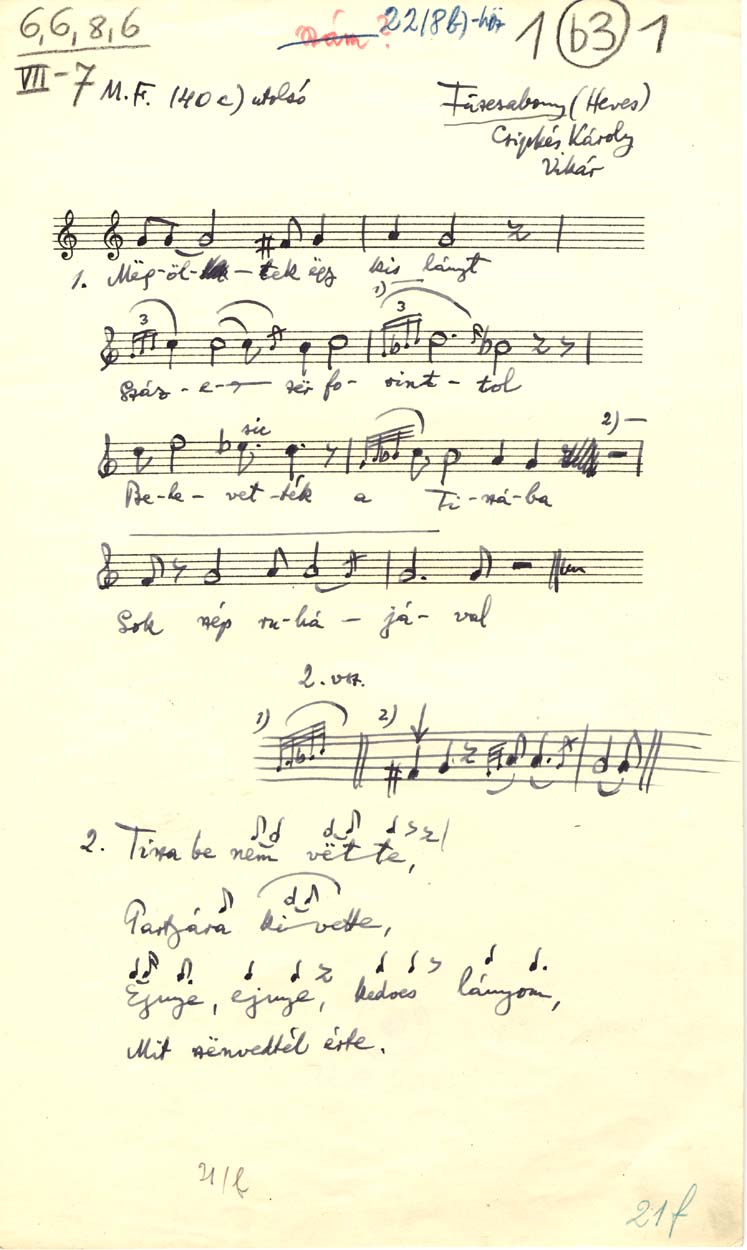 6,6,8,6
szám? 22/8b)-höz 1 b3 1
VII-7 M.F. (40c) utolsó
Füzesabony (Heves)
Csipkés Károly
Vikár
1. Mëg-öl-tek ëgy kis lányt
1)
3 3
Száz - e - zër fo - rint - tol
sic 2)
Be-le-vet-ték a Ti-szá-ba
Sok szép ru-há-já-val
2. vsz.
1) 2)
2. Tisza be nëm vëtte,
Partjára ki vette,
Ejnye, ejnye, kedves lányom,
Mit szënvedtél érte.
21/f
21f